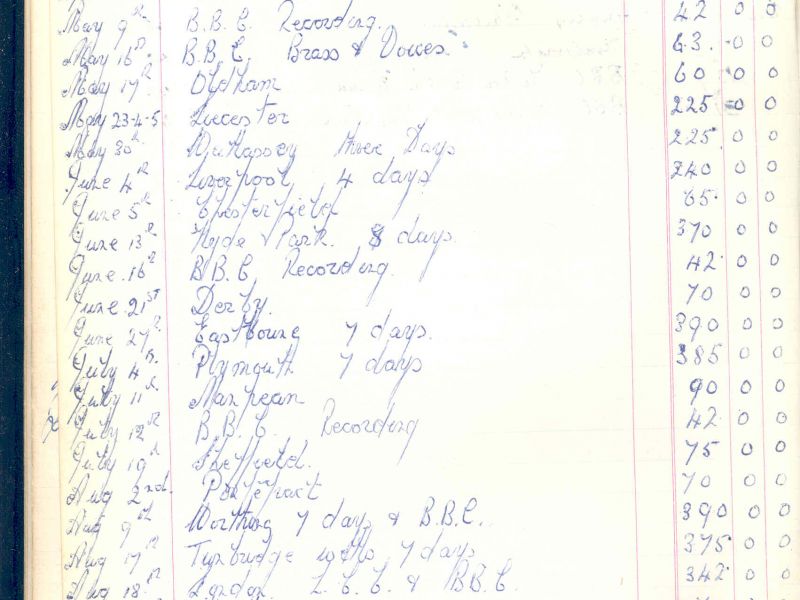 May 9th B.B.C. Recording. 42 0 0
May 16th B.B.C. Brass & Voices 63. 0 0
May 17th Oldham 60 0 0
May 23-4-5 Leicester 225 0 0
May 30th three Days 225 0 0
June 4th Liverpool 4 days 240 0 0
June 5th Chesterfield 65. 0 0
June 13th Hyde Park. 8 days 370 0 0
June 16th B.B.C. Recording. 42 0 0
June 21st Derby. 70 0 0
June 27th Eastbourne 7 days. 390 0 0
July 4th Plymouth 7 days 385 0 0
July 11th 90 0 0
July 12th B.B.C. Recording 42. 0 0
July 19th Sheffield. 75 0 0
Aug 2nd. Pontefract 70 0 0
Aug 9th Worthing 7 days & B.B.C. 390 0 0
Aug 17th Tunbridge wells 7 days 375 0 0
Aug 18th London. L.C.C. & B.B.C. 342 0 0